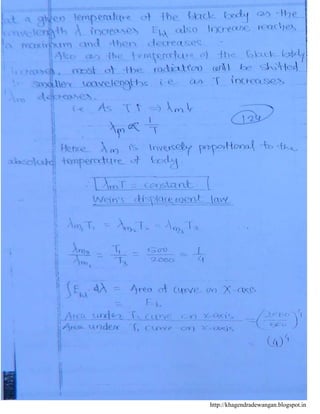 at a given temperature of the black body as the
wavelength λ increases Ebλ also increase reaches
a maximum and then decreases.
Also as the temperature of the black body
increases, most of the radiation will be shifted
smaller wavelengths i.e as T increases
λm decreases.
i.e As T↑ ⇒ λm↓
124
λm ∝ 1/T
Hence λm is inversely proportional to the
absolute temperature of body
λmT = constant
Wein's displacement law
λm1T1 = λm2T2 = λm3T3 ...
λm2/λm1 = T1/T2 = 500/2000 = 1/4
∫Ebλ.dλ = Area of curve on X-axis
= Eb
Area under T2 curve on x-axis / Area under T1 curve on x-axis = (2000/500)^4
= (4)^4
http://khagendradewangan.blogspot.in